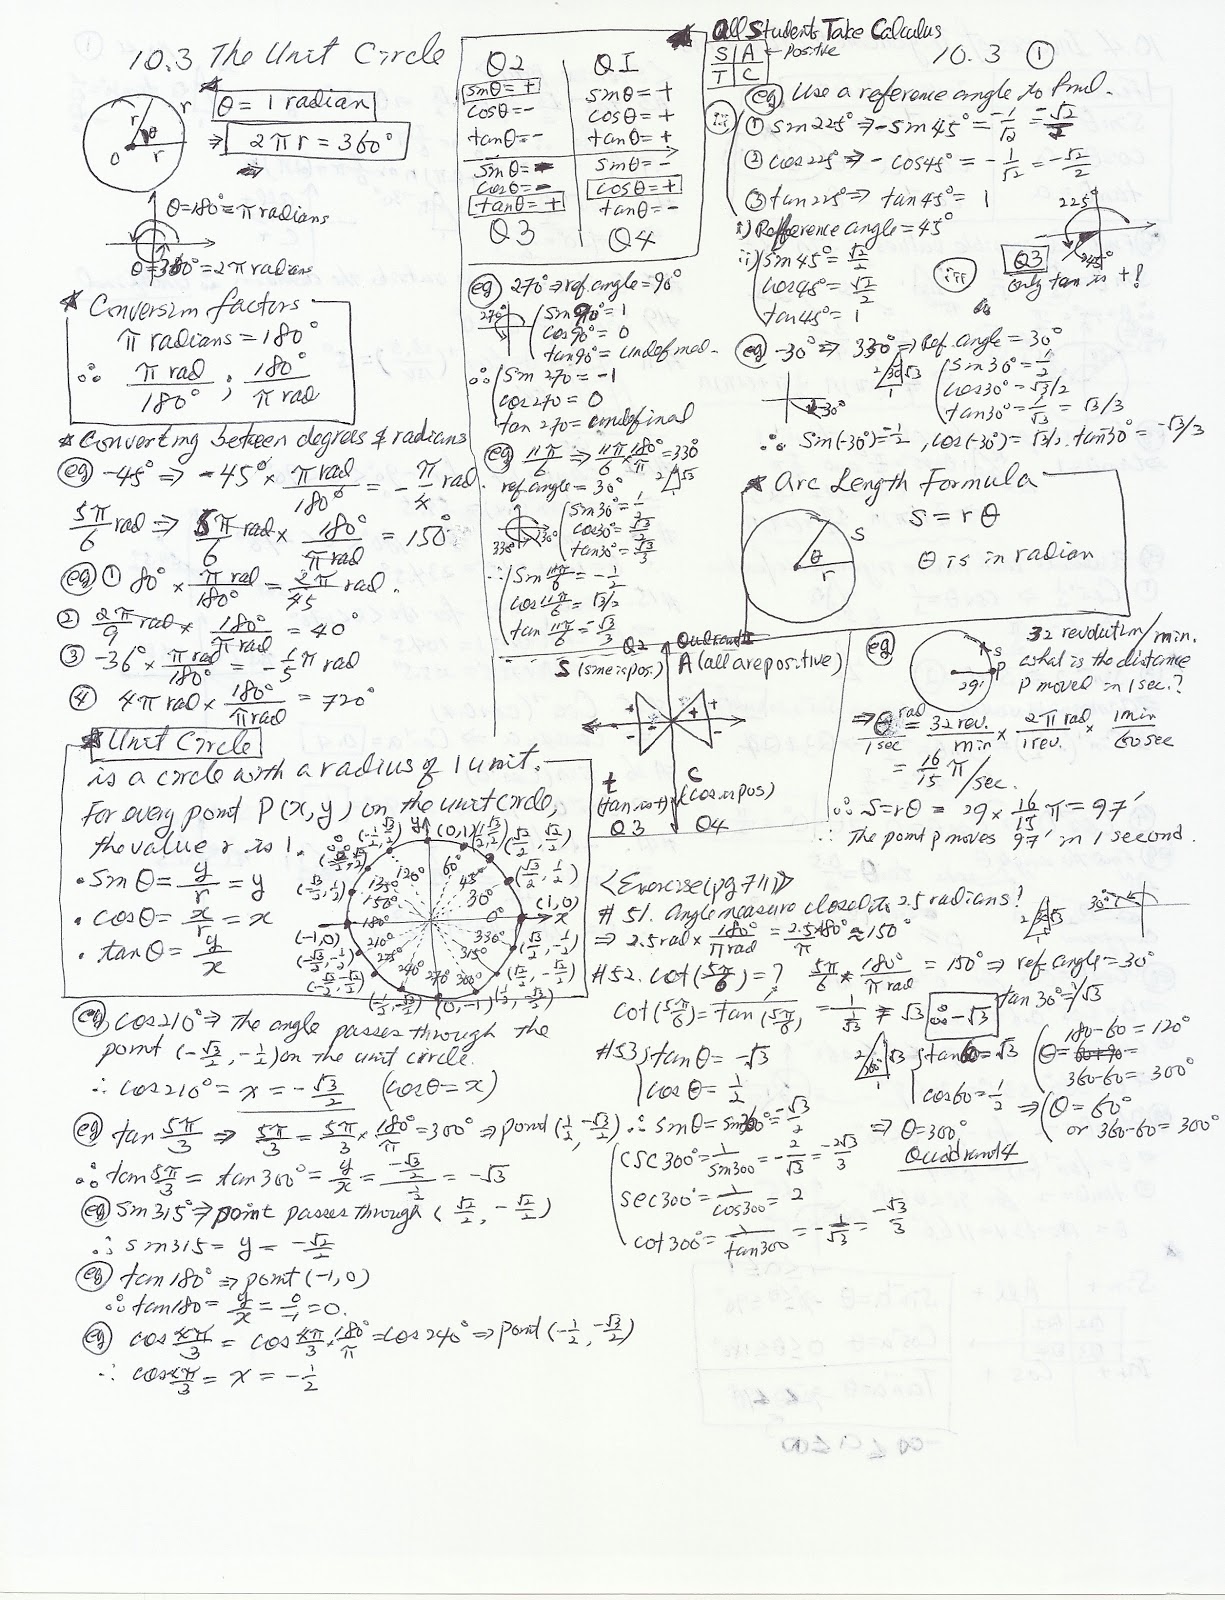 10.3 The Unit Circle
θ = 1 radian
⇒ 2πr = 360°
r
r
θ
o
r
θ=180°=π radians
θ=360°=2π radians
* Conversion factors
π radians = 180°
∴ π rad/180° ; 180°/π rad
* Converting between degrees & radians
eg -45° ⇒ -45° × π rad/180° = -π/4 rad
5π/6 rad ⇒ 5π/6 rad × 180°/π rad = 150°
eg ① 80° × π rad/180° = 2π/45 rad.
② 2π/9 rad × 180°/π rad = 40°
③ -36° × π rad/180° = -1/5 π rad
④ 4π rad × 180°/π rad = 720°
* Unit Circle
is a circle with a radius of 1 unit.
For every point P(x,y) on the unit circle,
the value r is 1.
• sinθ = y/r = y
• cosθ = x/r = x
• tanθ = y/x
y (0,1)
(1,0)
x
(-1,0)
(0,-1)
0°
30°
45°
60°
120°
135°
150°
180°
210°
240°
270°
300°
315°
330°
(√3/2, 1/2)
(√2/2, √2/2)
(-1/2, √3/2)
(-√3/2, 1/2)
(-√3/2, -1/2)
(-√2/2, -√2/2)
(-1/2, -√3/2)
(1/2, -√3/2)
(√2/2, -√2/2)
(√3/2, -1/2)
eg cos210° ⇒ the angle passes through the
point (-√3/2, -1/2) on the unit circle.
∴ cos210° = x = -√3/2 (cosθ = x)
eg tan 5π/3 ⇒ 5π/3 = 5π/3 × 180°/π = 300° ⇒ point (1/2, -√3/2)
∴ tan 5π/3 = tan300° = y/x = (-√3/2)/(1/2) = -√3
eg sin315° ⇒ point passes through (√2/2, -√2/2)
∴ sin315 = y = -√2/2
eg tan180° ⇒ point (-1,0)
∴ tan180 = y/x = 0/-1 = 0.
eg cos 4π/3 = cos 4π/3 × 180°/π = cos240° ⇒ point (-1/2, -√3/2)
∴ cos 4π/3 = x = -1/2
Q2 Q1
sinθ = + sinθ = +
cosθ = - cosθ = +
tanθ = - tanθ = +
sinθ = - sinθ = -
cosθ = - cosθ = +
tanθ = + tanθ = -
Q3 Q4
eg 270° ⇒ ref.angle = 90°
270°
sin90° = 1
cos90° = 0
tan90° = undefined.
∴ sin 270 = -1
cos 270 = 0
tan 270 = undefined
eg 11π/6 ⇒ 11π/6 × 180°/π = 330°
ref.angle = 30°
2 √3
330° 30°
sin30° = 1/2
cos30° = √3/2
tan30° = √3/3
∴ sin 11π/6 = -1/2
cos 11π/6 = √3/2
tan 11π/6 = -√3/3
Q2
Quadrant
S (sine is pos.) A (all are positive)
t C
(tan is +) (cos is pos)
Q3 Q4
* All Students Take Calculus
S A ← positive
T C
10.3 ①
eg Use a reference angle to find.
iii) ① sin225° ⇒ -sin45° = -1/√2 = -√2/2
② cos225° ⇒ -cos45° = -1/√2 = -√2/2
③ tan225° ⇒ tan45° = 1
i) Reference angle = 45°
ii) sin45° = √2/2
cos45° = √2/2
tan45° = 1
225°
45°
iii Q3
only tan is +!
eg -30° ⇒ 330° ⇒ Ref.angle = 30°
2 30 √3
1
-30°
sin30° = 1/2
cos30° = √3/2
tan30° = 1/√3 = √3/3
∴ sin(-30°) = -1/2, cos(-30°) = √3/2, tan-30° = -√3/3
* Arc Length Formula
S = rθ
θ is in radian
S
θ
r
eg
s
P
29'
32 revolution/min.
what is the distance
P moved in 1 sec.?
⇒ θ rad/1 sec = 32 rev./min × 2π rad/1 rev. × 1 min/60 sec
= 16/15 π/sec.
∴ S = rθ = 29 × 16/15 π = 97'
∴ The point p moves 97' in 1 second.
<Exercise (pg 711)>
#51. Angle measure closest to 2.5 radians?
⇒ 2.5 rad × 180°/π rad = 2.5×180°/π ≈ 150°
2 √3
1
30°
#52. cot(5π/6) = ? 5π/6 × 180°/π rad = 150° ⇒ ref.angle = 30°
tan30° = 1/√3
cot(5π/6) = 1/tan(5π/6) = 1/(1/√3) = √3 ∴ -√3
#53 tanθ = -√3
cosθ = 1/2
2 √3
1
tan60 = √3
cos60 = 1/2
180-60 = 120°
θ = 60+90=
360-60 = 300°
⇒ θ = 60°
or 360-60 = 300°
∴ sinθ = sin300° = -√3/2 ⇒ θ = 300°
Quadrant 4
csc300° = 1/sin300 = -2/√3 = -2√3/3
sec300° = 1/cos300° = 2
cot300° = 1/tan300 = -1/√3 = -√3/3